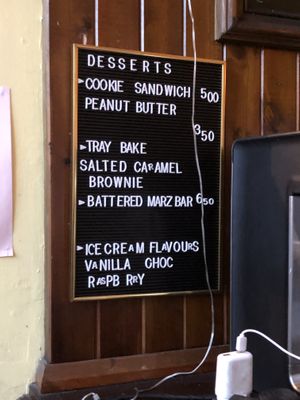 DESSERTS
COOKIE SANDWICH 500
PEANUT BUTTER
350
TRAY BAKE
SALTED CARAMEL
BROWNIE
BATTERED MARZ BAR 650
ICE CREAM FLAVOURS
VANILLA CHOC
RASPB RRY